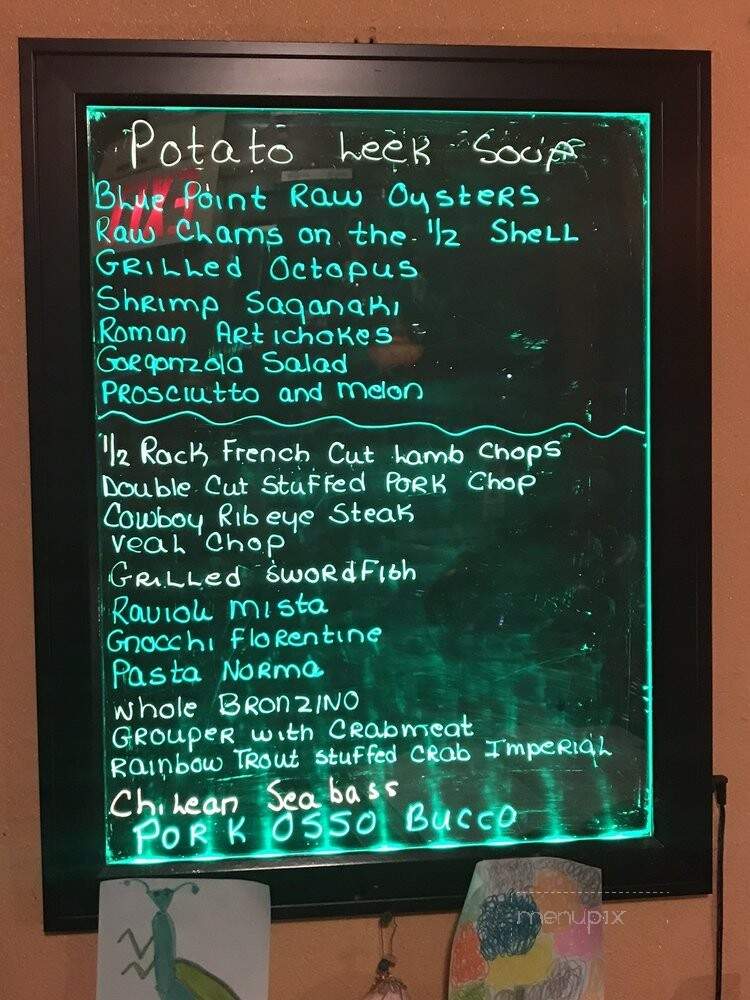 Potato Leek Soup
Blue Point Raw Oysters
Raw Clams on the 1/2 Shell
Grilled Octopus
Shrimp Saganaki
Roman Artichokes
Gorgonzola Salad
Prosciutto and Melon
1/2 Rack French Cut Lamb Chops
Double Cut Stuffed Pork Chop
Cowboy Ribeye Steak
Veal Chop
Grilled Swordfish
Ravioli Mista
Gnocchi Florentine
Pasta Norma
Whole Bronzino
Grouper with Crabmeat
Rainbow Trout Stuffed Crab Imperial
Chilean Seabass
Pork Osso Bucco
menupix